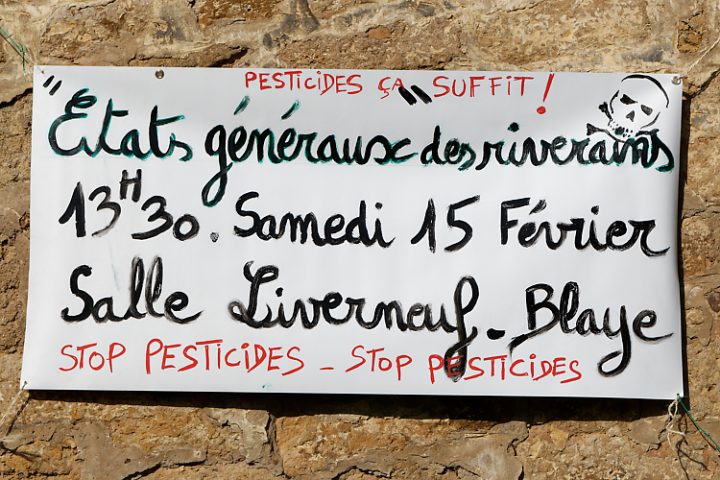 PESTICIDES ÇA SUFFIT !
"États généraux" des riverains
13H30. Samedi 15 Février
Salle Liverneuf - Blaye
STOP PESTICIDES - STOP PESTICIDES